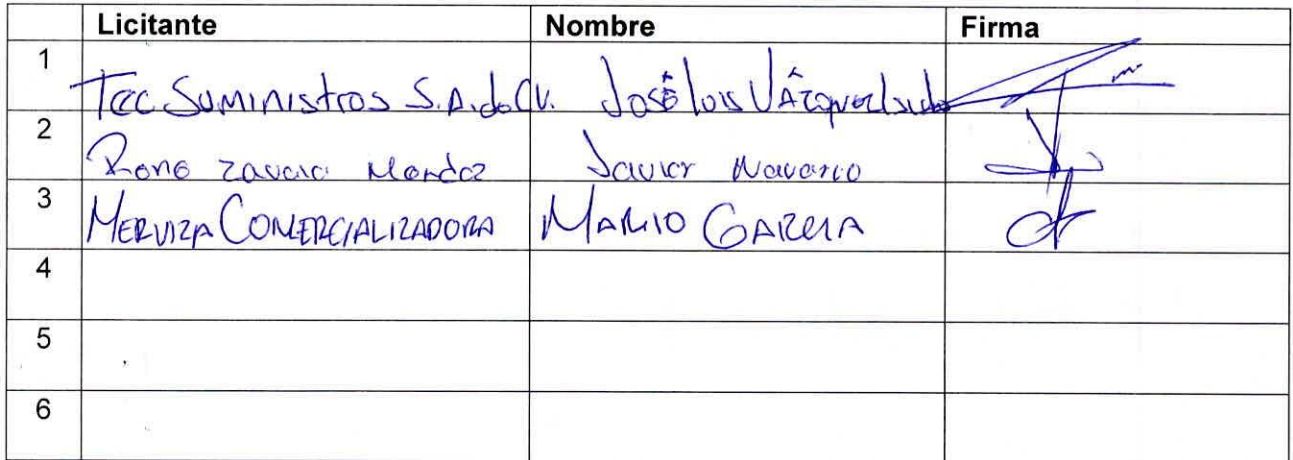 Licitante Nombre Firma
1 Tec Suministros S.A. de CV. José Luis Vázquez
2 Rene Zavala Mendez Javier Navarro
3 MERVIZA COMERCIALIZADORA MARIO GARCIA
4
5
6